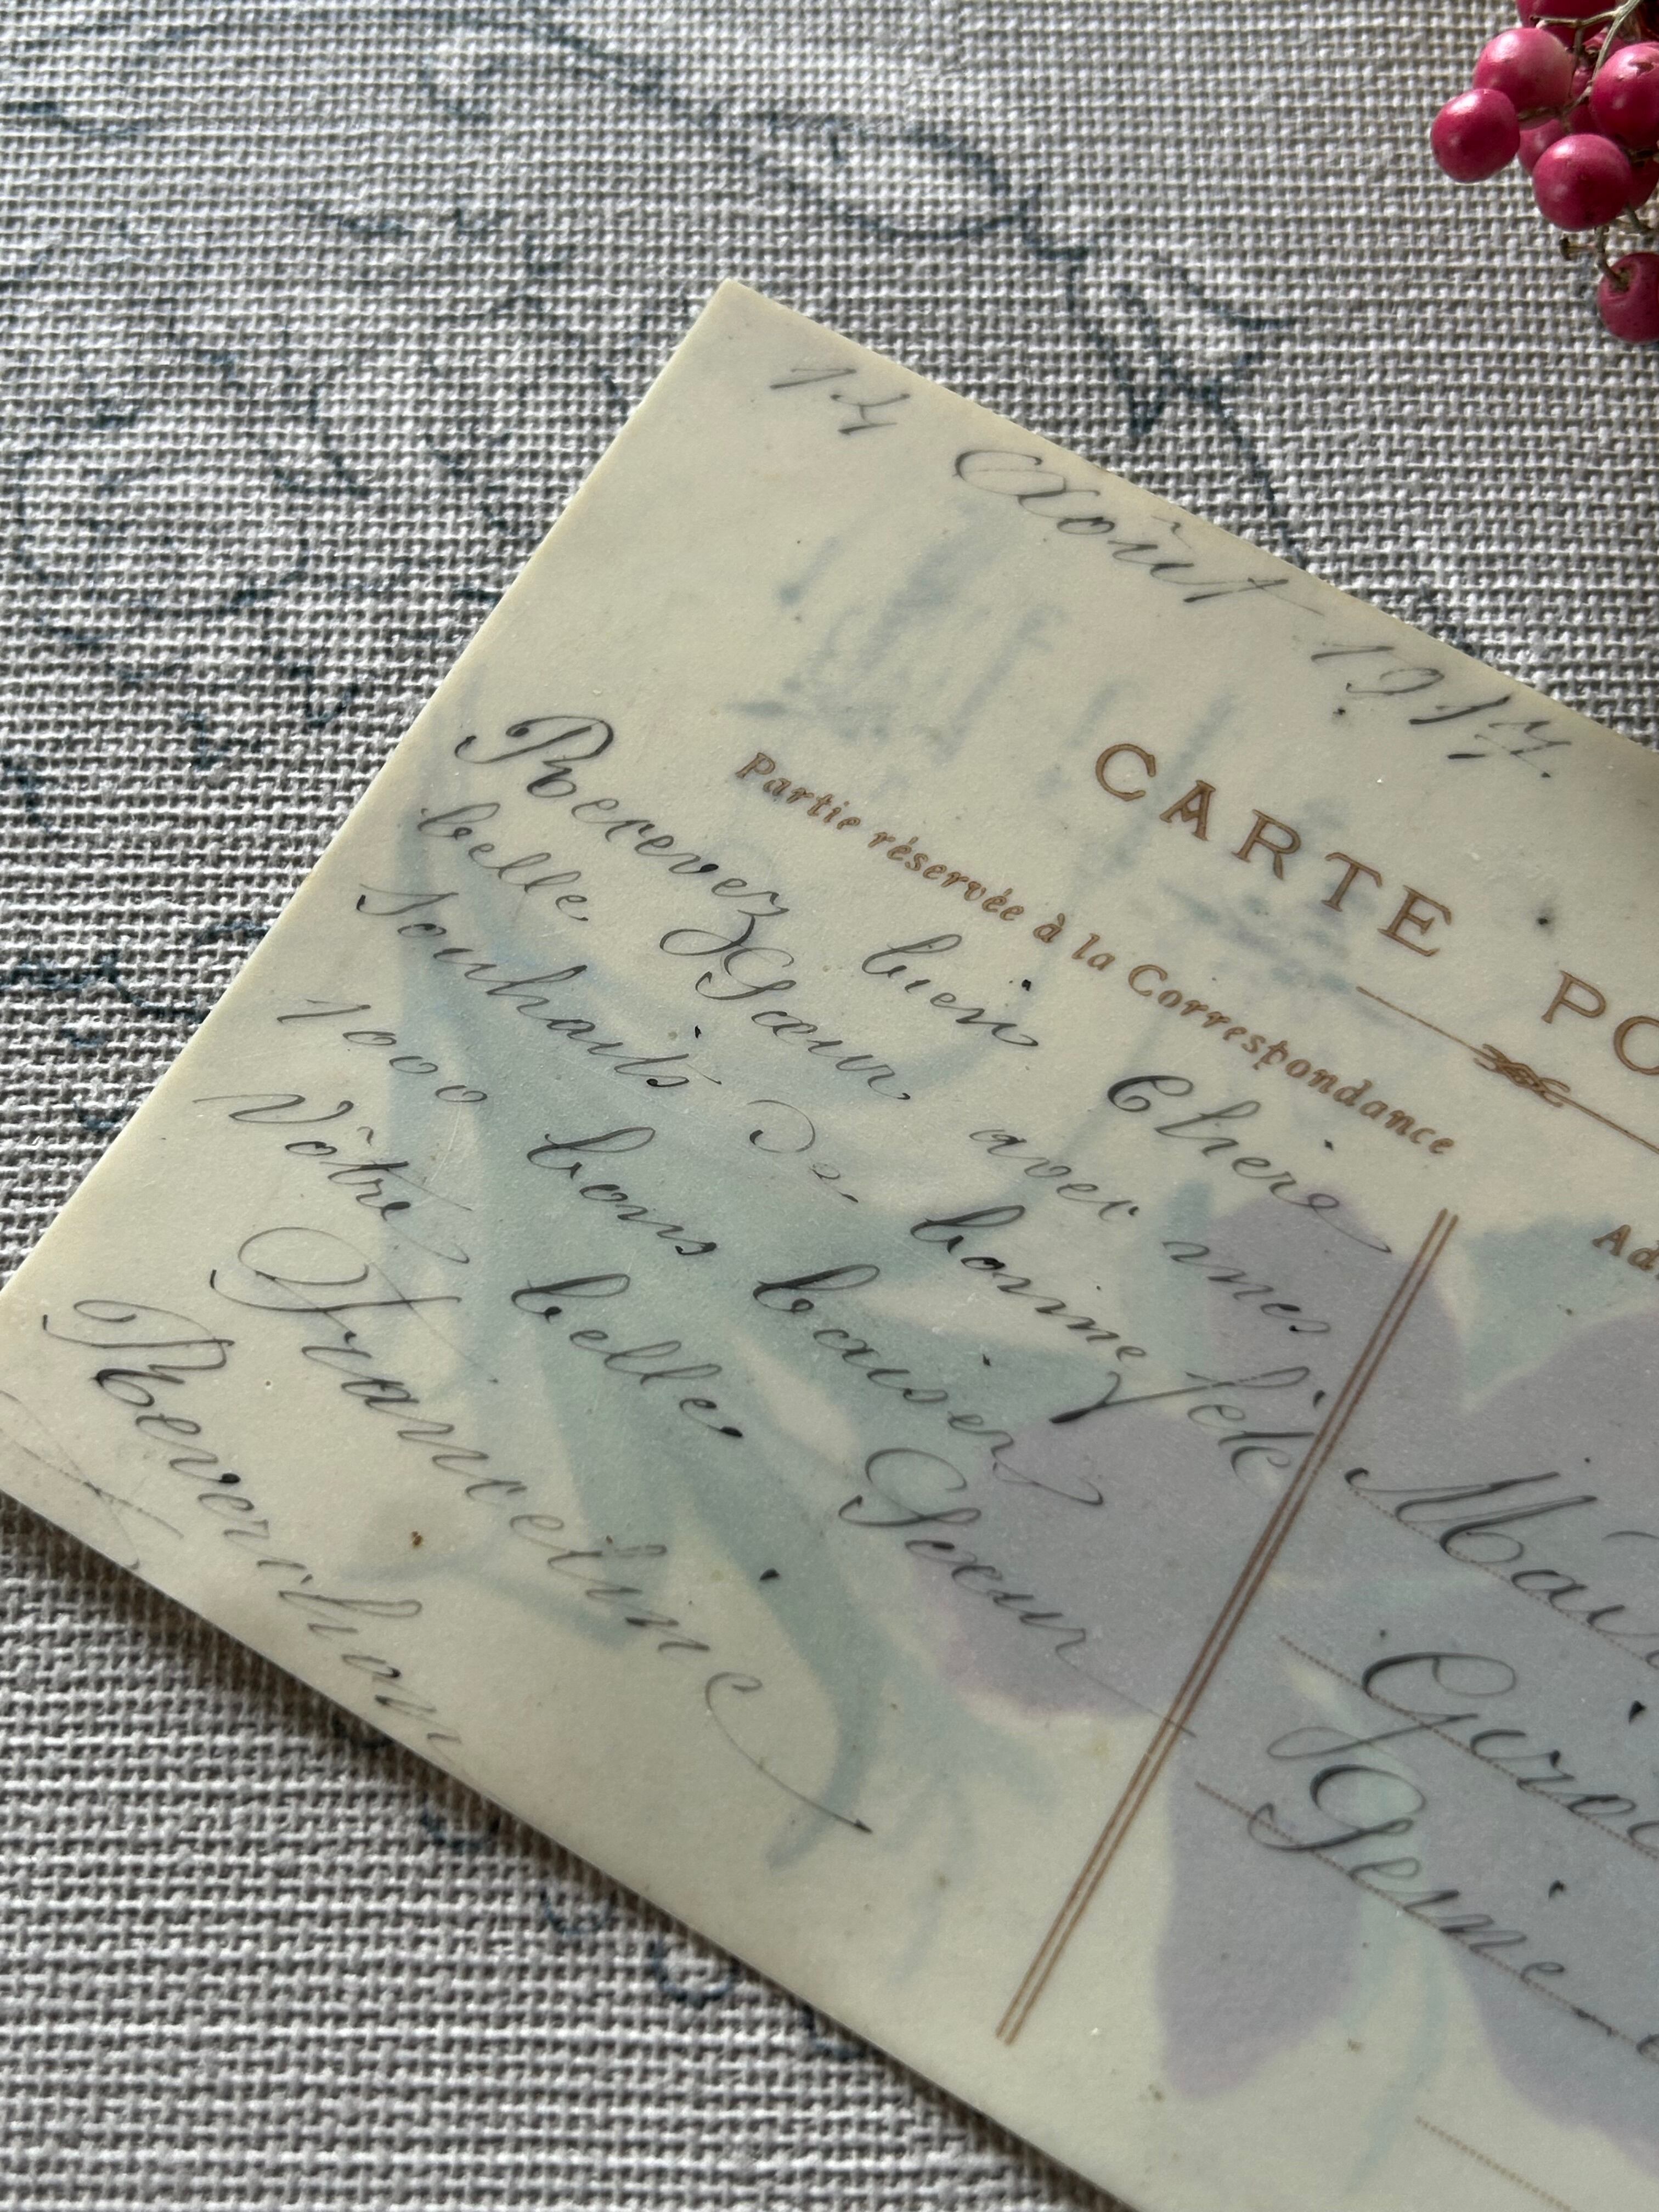 14 Août 1917.
CARTE PO
Partie réservée à la Correspondance
Recevez bien Chère
belle Sœur avec mes
souhaits de bonne fête
1000 bons baisers
Vôtre belle Sœur
Franceline
Reverchon
Ad
Girod
Seine